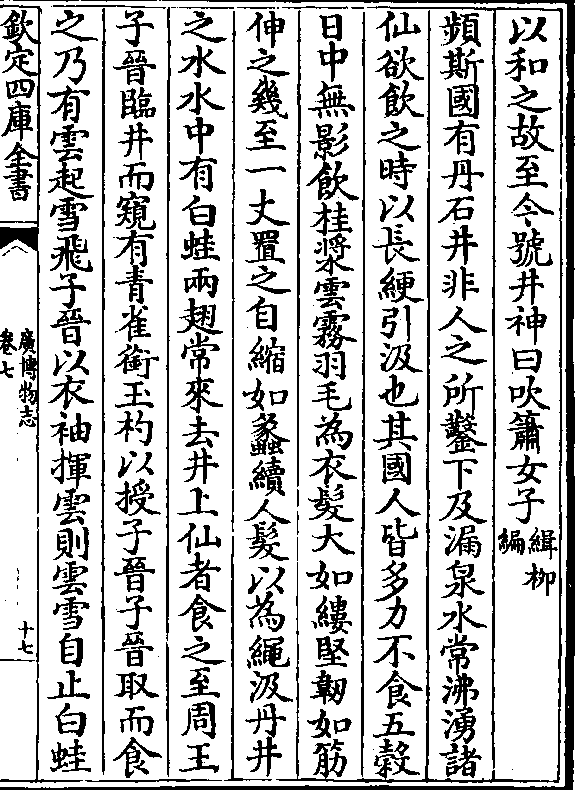 以和之故至今號井神曰吹簫女子緝柳編
頻斯國有丹石井非人之所鑿下及漏泉水常沸湧諸
仙欲飲之時以長綆引汲也其國人皆多力不食五穀
日中無影飲桂漿雲霧羽毛為衣髮大如縷堅韌如筋
伸之幾至一丈置之自縮如蠡續人髮以為繩汲丹井
之水水中有白蛙兩翅常來去井上仙者食之至周王
子晉臨井而窺有青雀銜玉杓以授子晉子晉取而食
之乃有雲起雪飛子晉以衣袖揮雲則雲雪自止白蛙
欽定四庫全書
廣博物志
卷七
十七